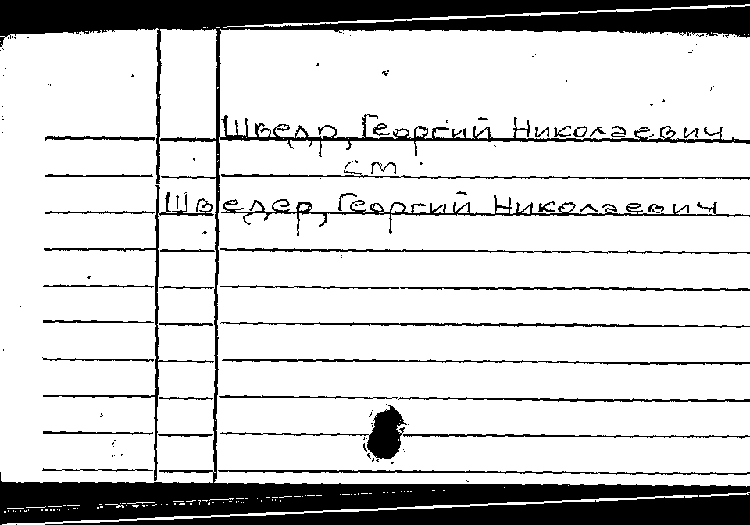 Шведр, Георгий Николаевич
см.
Шведер, Георгий Николаевич